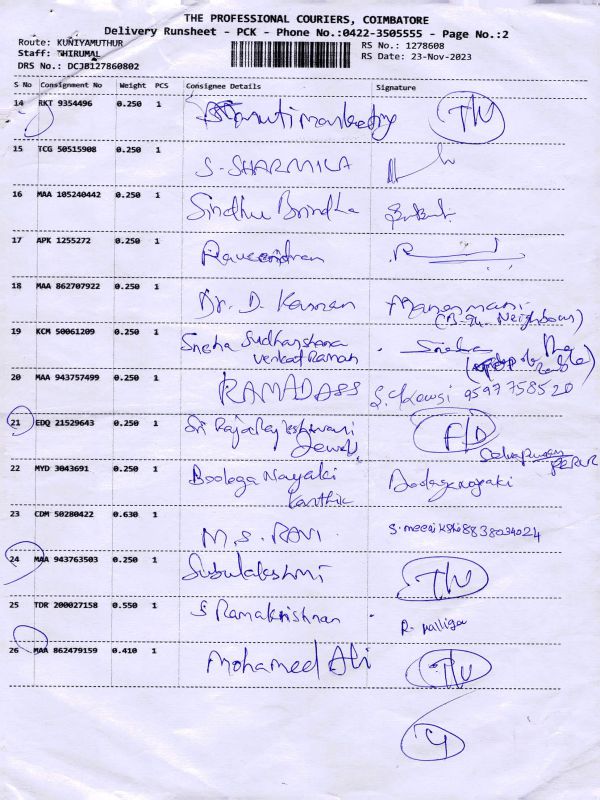 THE PROFESSIONAL COURIERS, COIMBATORE
Delivery Runsheet - PCK - Phone No.:0422-3505555 - Page No.:2
Route: KUNIYAMUTHUR
RS No.: 1278608
Staff: THIRUMAL
RS Date: 23-Nov-2023
DRS No.: DCJB127860802
S No Consignment No Weight PCS Consignee Details Signature
14 RKT 9354496 0.250 1
15 TCG 50515908 0.250 1 S. SHARMILA
16 MAA 105240442 0.250 1 Sindhu Brindha
17 APK 1255272 0.250 1 Raveendran
18 MAA 862707922 0.250 1 Dr. D. Kannan
Neighbour)
19 KCM 50061209 0.250 1 Sneha Sudharshana Sneha
Venkat Raman
20 MAA 943757499 0.250 1 RAMADASS S. Gowsi 9597758520
21 EDQ 21529643 0.250 1 Sri Rajarajeshwari F/D
Jewel
22 MYD 3043691 0.250 1 Boologa Nayaki Boologanayaki
Karthik
23 CDM 50280422 0.630 1 M.S. RAVI S. meenikshi 8838034024
24 MAA 943763503 0.250 1 Subulakshmi
25 TDR 200027158 0.550 1 S Ramakrishnan
26 MAA 862479159 0.410 1 Mohamed Ali